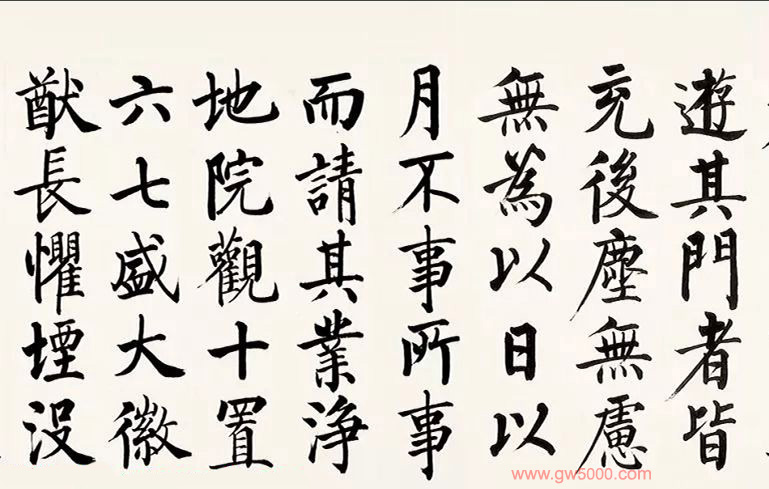 遊其門者皆
充後塵無慮
無為以日以
月不事所事
而請其業淨
地院觀十置
六七盛大徽
猷長懼堙没
www.gw5000.com